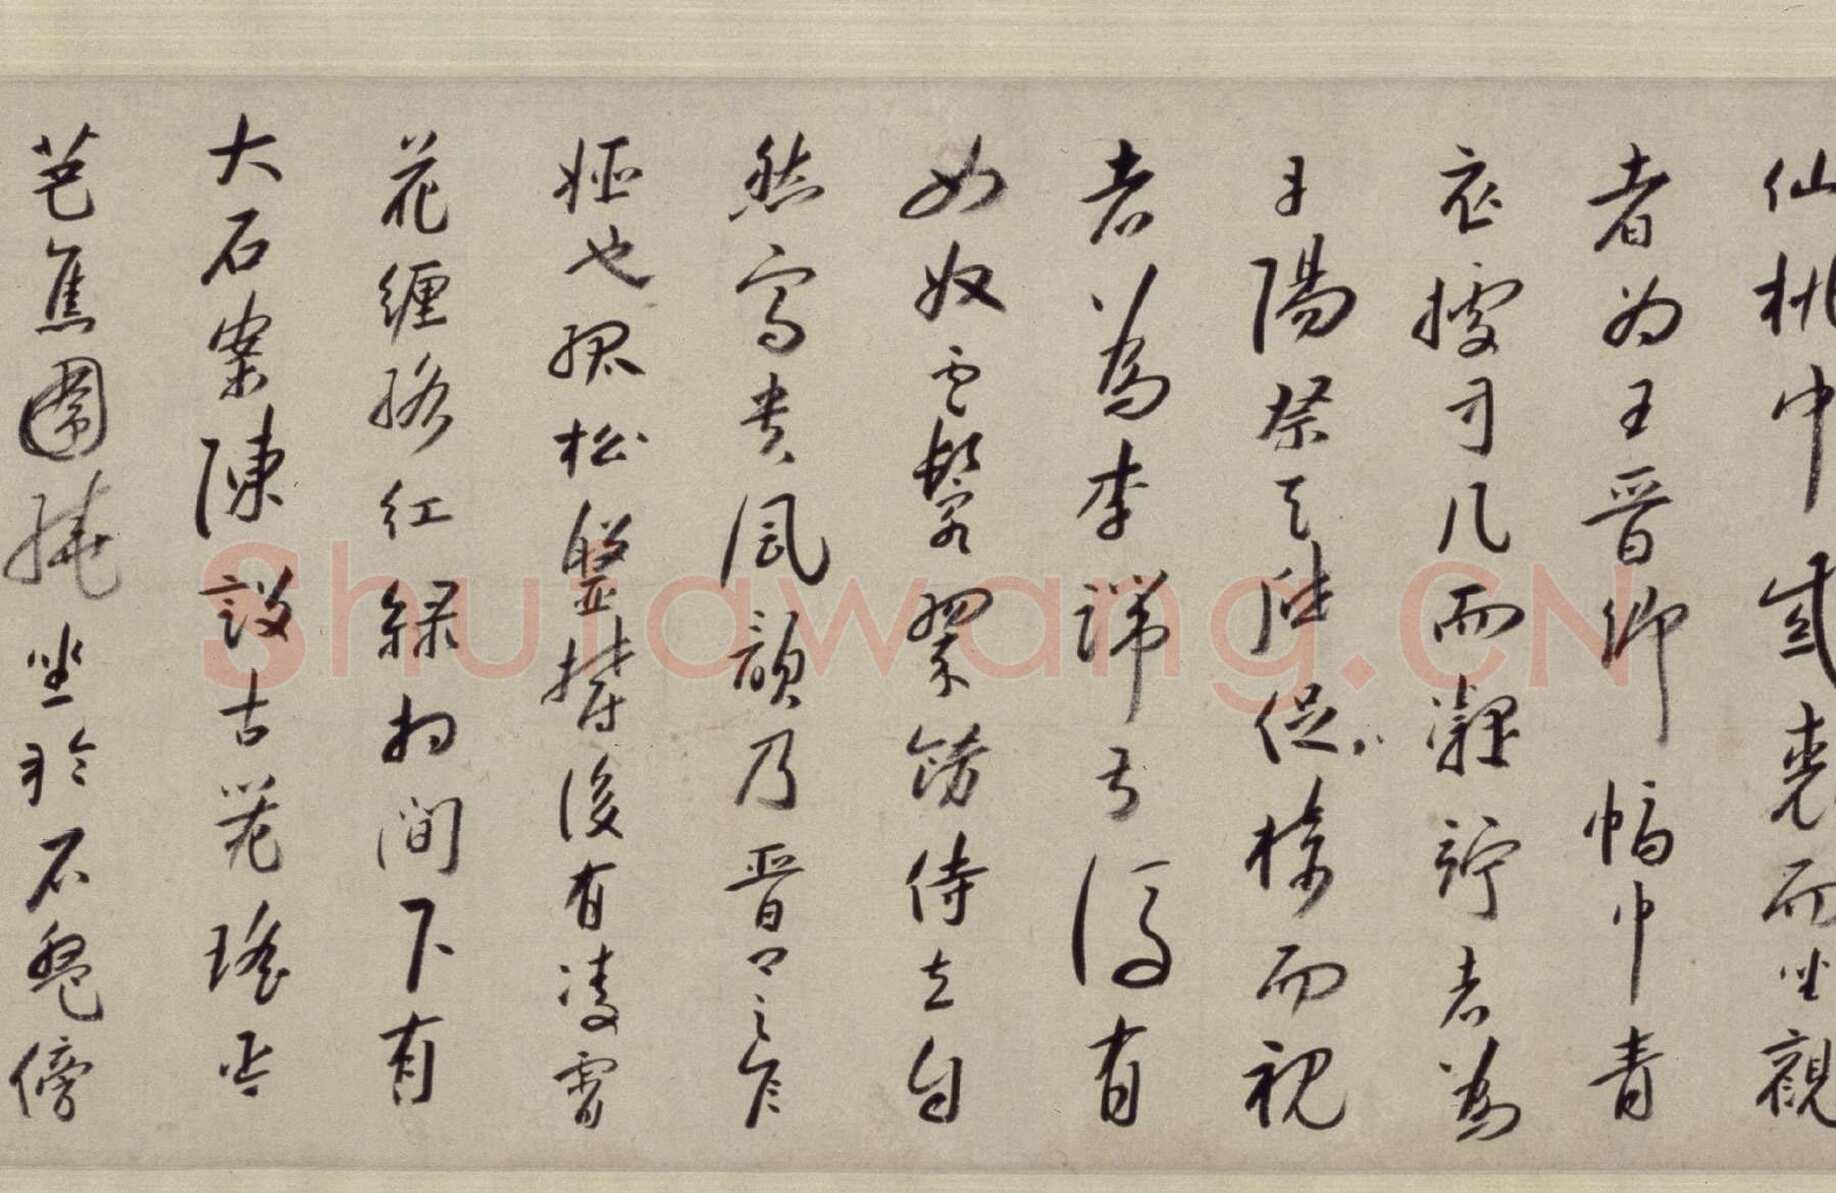 仙桃巾紫裘而坐觀
者為王晉卿幅巾青
衣據方几而凝竚者為
丹陽蔡天啓促椅而視
者為李端叔後有
女奴雲鬟翠飾侍立自
然富貴風韻乃晉卿之家
姬也孤松盤鬱後有凌霄
花纏絡紅綠相間下有
大石案陳設古器瑤琴
芭蕉圍繞坐於石盤傍
Shufawang.CN